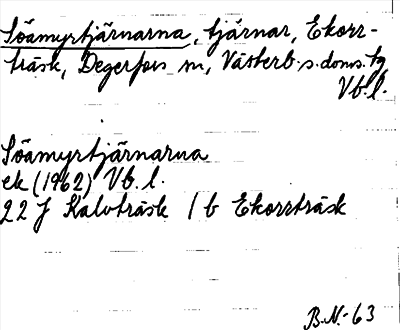 Söamyrtjärnarna, tjärnar, Ekorr-
träsk, Degerfors sn, Västerb. s. doms. tg
Vb. l.
Söamyrtjärnarna
ek (1962) Vb. l.
22 J Kalvträsk / b Ekorrträsk
B.N.-63